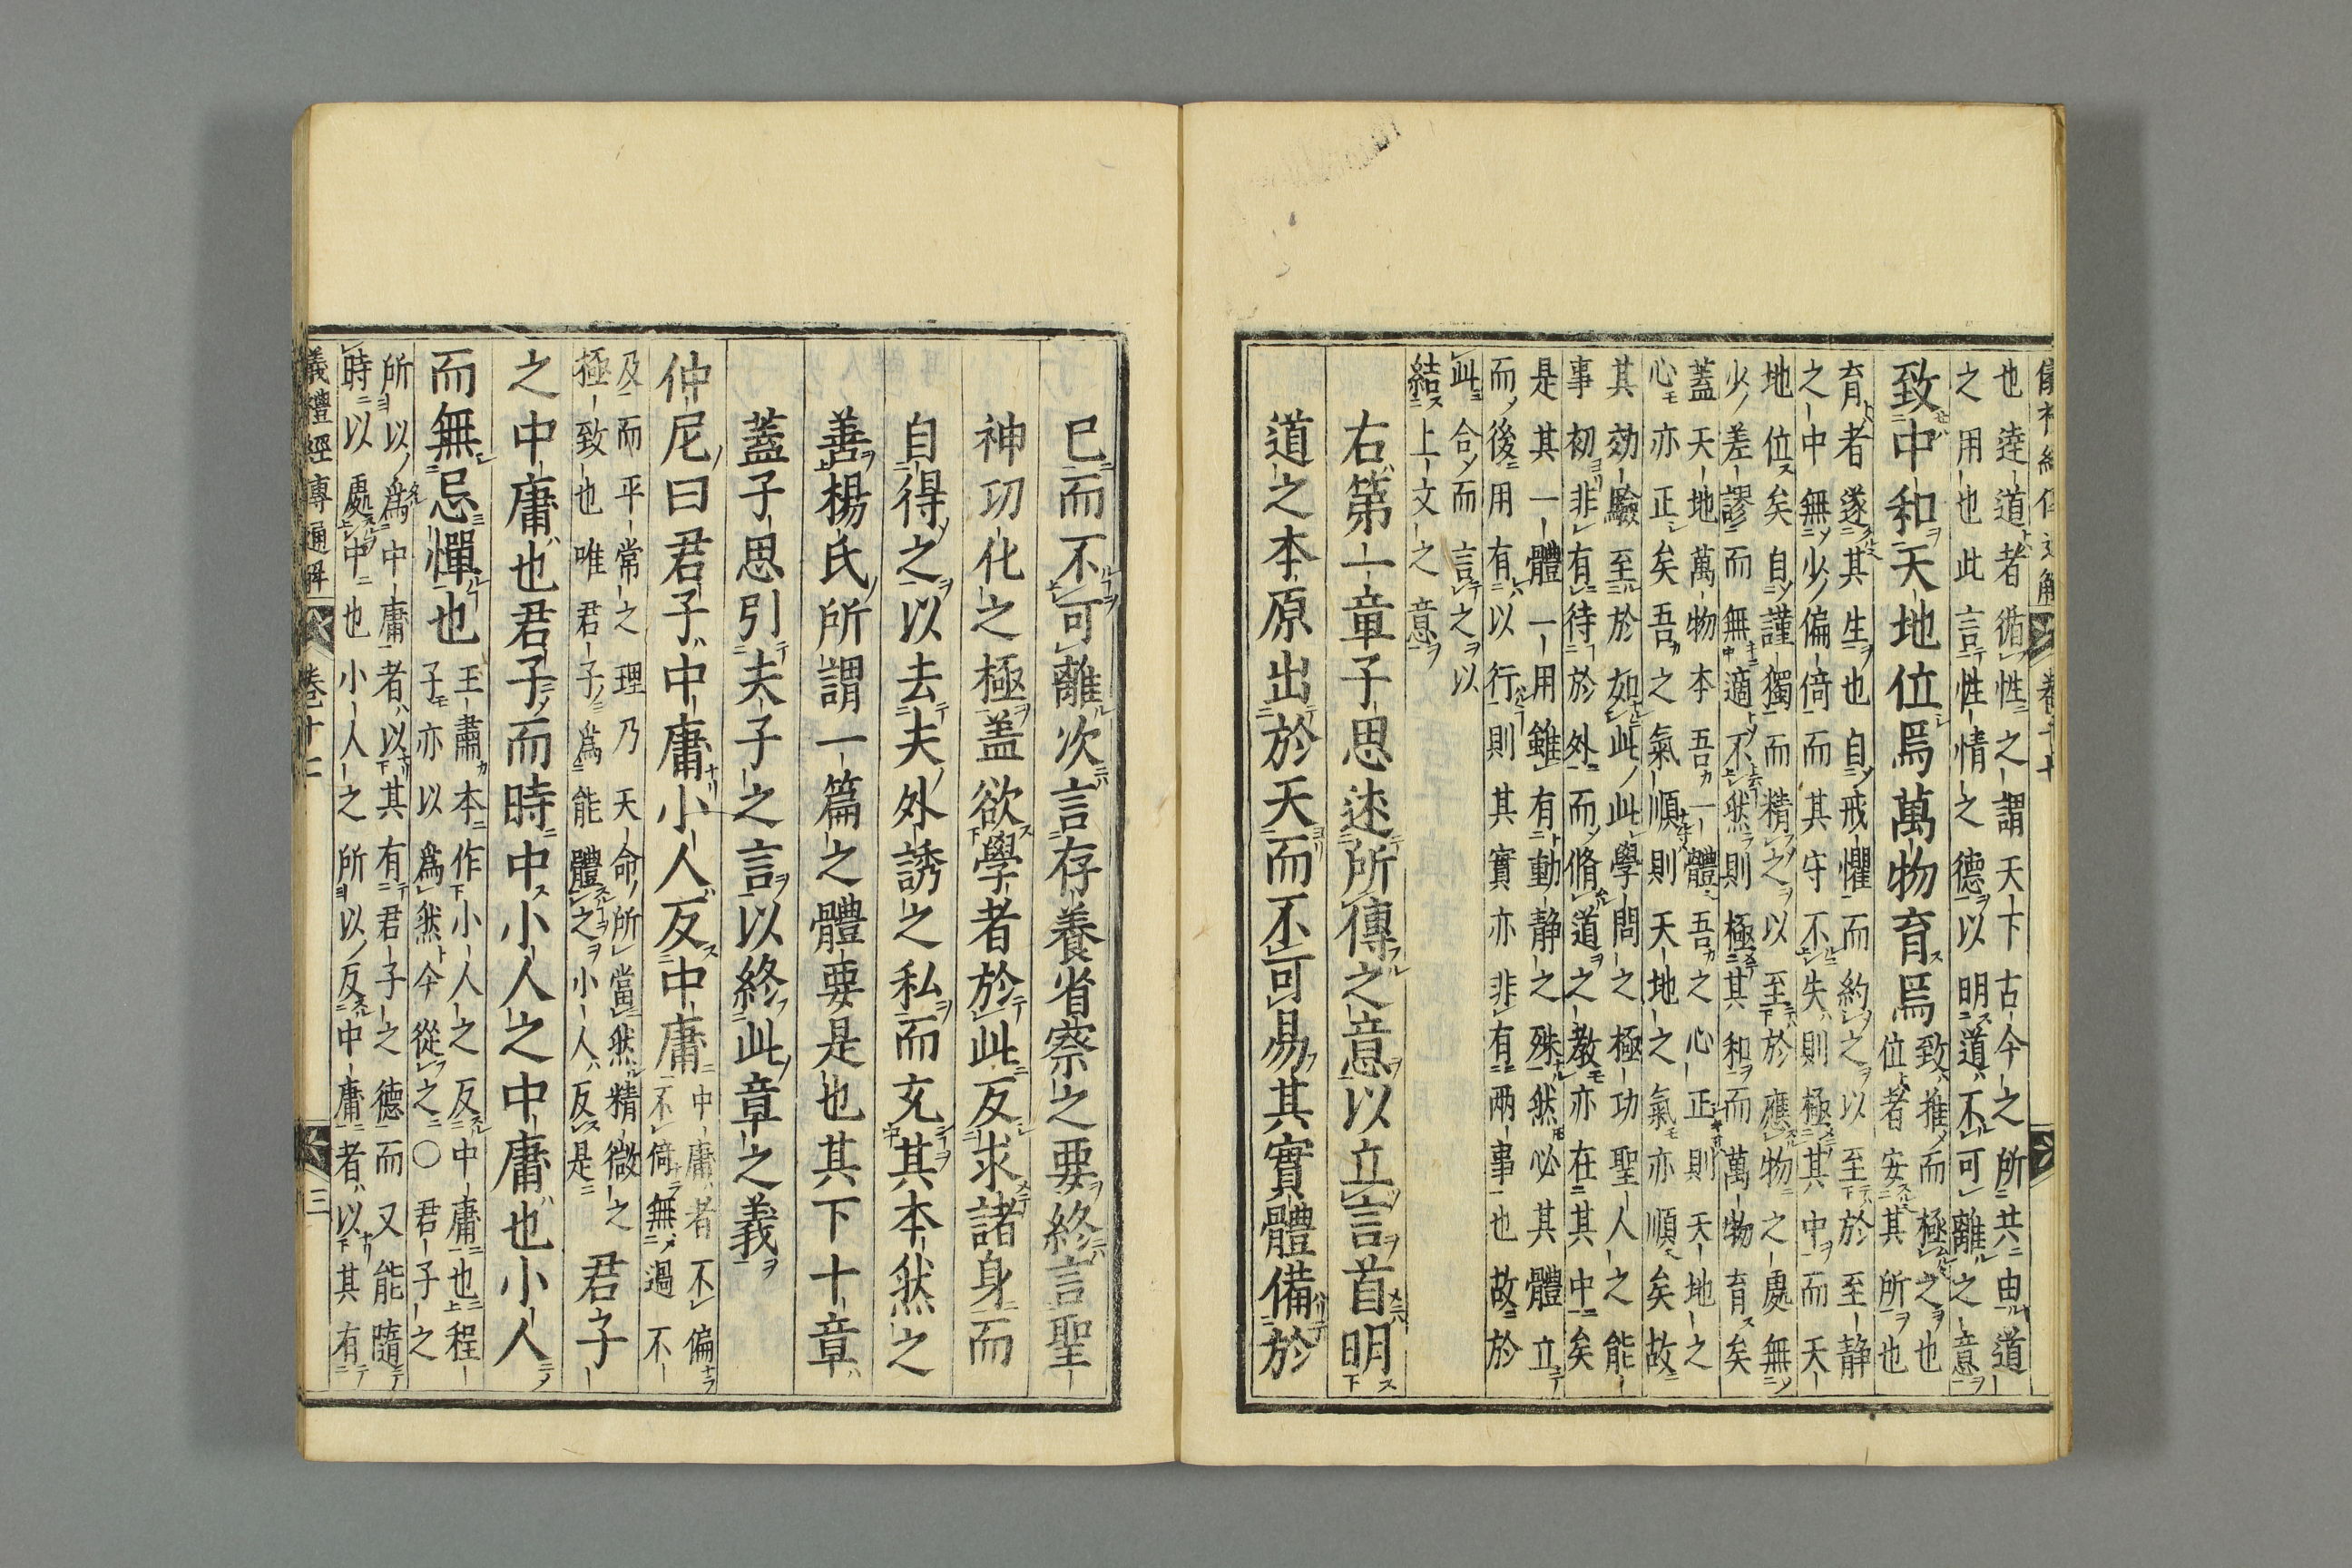 也達道者循性之謂天下古今之所共由道
之用也此言性情之德以明道不可離之意
致中和天地位焉萬物育焉
致推而極之也
位者安其所也
育者遂其生也自戒懼而約之以至於至静
之中無少偏倚而其守不失則極其中而天
地位矣自謹獨而精之以至於應物之處無
少差謬而無適不然則極其和而萬物育矣
蓋天地萬物本吾一體吾之心正則天地之
心亦正矣吾之氣順則天地之氣亦順矣故
其効驗至於如此此學問之極功聖人之能
事初非有待於外而脩道之教亦在其中矣
是其一體一用雖有動静之殊然必其體立
而後用有以行則其實亦非有兩事也故於
此合而言之以
結上文之意
右第一章子思述所傳之意以立言首明
道之本原出於天而不可易其實體備於
已而不可離次言存養省察之要終言聖
神功化之極盖欲學者於此反求諸身而
自得之以去夫外誘之私而充其本然之
善楊氏所謂一篇之體要是也其下十章
蓋子思引夫子之言以終此章之義
仲尼曰君子中庸小人反中庸
中庸者不偏
不倚無過不
及而平常之理乃天命所當然精微之
極致也唯君子為能體之小人反是
君子
之中庸也君子而時中小人之中庸也小人
而無忌憚也
王肅本作小人之反中庸也程
子亦以為然今從之〇君子之
所以為中庸者以其有君子之德而又能隨
時以處中也小人之所以反中庸者以其有
儀禮經傳通解 卷十二 三